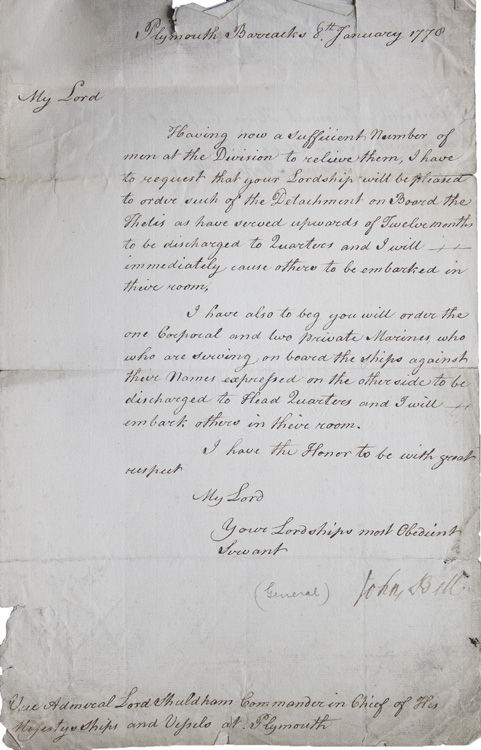 Plymouth Barracks 8th January 1778
My Lord
Having now a sufficient Number of
men at the Division to relieve them, I have
to request that your Lordship will be pleased
to order such of the Detachment on Board the
Thetis as have served upwards of Twelve months
to be discharged to Quarters and I will
immediately cause others to be embarked in
their room,
I have also to beg you will order the
one Corporal and two private Marines, who
who are serving on board the ships against
their Names expressed on the other side to be
discharged to Head Quarters and I will
embark others in their room.
I have the Honor to be with great
respect
My Lord
Your Lordships most Obedient
Servant
(General) John Bell
Vice Admiral Lord Shuldham Commander in Chief of His
Majestys Ships and Vessels at Plymouth